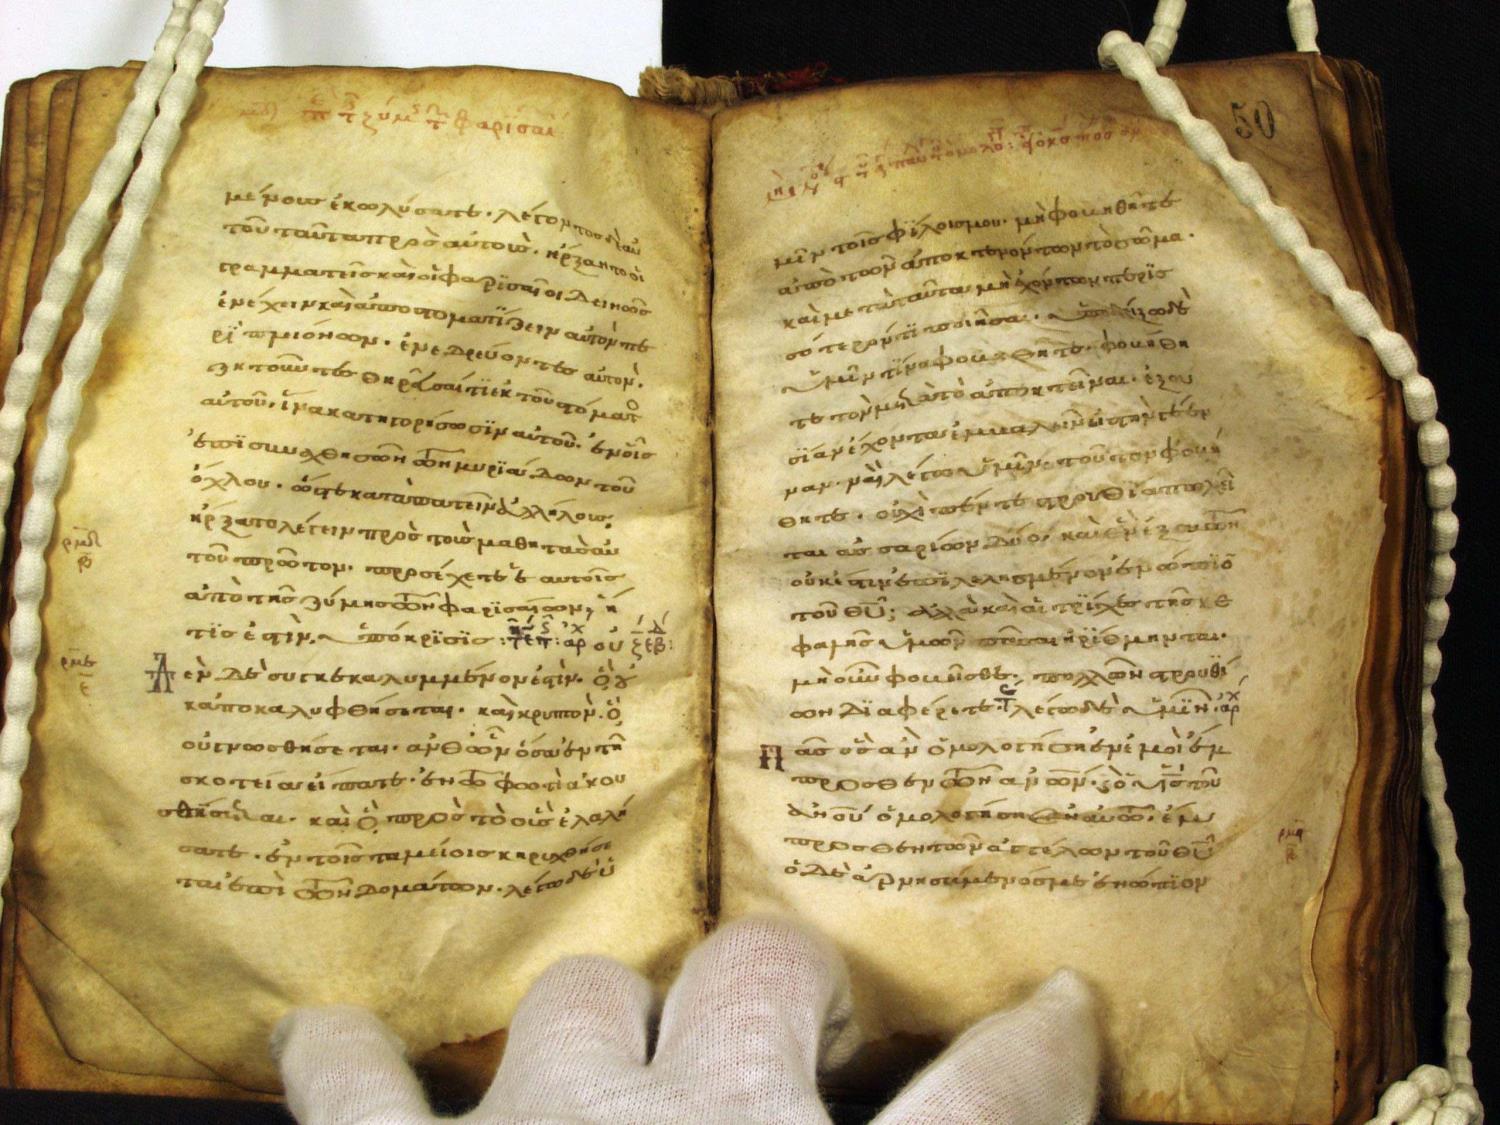 μένους ἐκωλύσατε· λέγοντος δὲ αὐ
τοῦ ταῦτα πρὸς αὐτοὺς· ἤρξαντο οἱ
γραμματεῖς καὶ οἱ φαρϊσαῖοι δεινῶς
ἐνέχειν καὶ ἀποστοματΐζειν αὐτὸν πε
ρῒ πλειόνων· ἐνεδρεύοντες αὐτὸν·
ζητοῦντες θηρεῦσαί τϊ ἐκ τοῦ στόματο
αὐτοῦ· ἵνα κατηγορήσωσϊν αὐτοῦ· ἐν οἷς
ἐπϊσυναχθησῶν τῶν μυρϊάδων τοῦ
ὄχλου· ὥστε καταπατεῖν ἀλλήλους,
ἤρξατο λέγειν πρὸς τοὺς μαθητὰς αὐ
τοῦ πρῶτον· προσέχετε ἑαυτοῖς
ἀπὸ τῆς ζύμης τῶν φαρϊσαίων, ἥ
τϊς ἐστὶν, ὑπόκρϊσϊς:
Οὐδὲν δὲ συγκεκαλυμμένον ἐστὶν· ὃ οὐ
κ ἀποκαλυφθήσεται· καὶ κρυπτὸν· ὃ
οὐ γνωσθήσεται· ἀνθ' ὧν ὅσα ἐν τῇ
σκοτείᾳ εἴπατε· ἐν τῷ φωτὶ ἀκου
σθήσεται· καὶ ὃ πρὸς τὸ οὖς ἐλαλή
σατε· ἐν τοῖς ταμείοις κηρυχθήσε
ται ἐπὶ τῶν δομάτων· λέγω δὲ ὑ
50
μῖν τοῖς φΐλοις μου· μὴ φοβηθῆτε
ἀπὸ τῶν ἀποκτενόντων τὸ σῶμα·
καὶ μετὰ ταῦτα μὴ ἐχόντων περϊσ
σότερόν τϊ ποιῆσαι· ὑποδείξω δὲ
ὑμῖν τΐνα φοβηθῆτε· φοβήθη
τε τὸν μετὰ τὸ ἀποκτεῖναι· ἐξου
σΐαν ἔχοντα ἐμβαλεῖν εἰς τὴν γέεν
ναν· ναὶ λέγω ὑμῖν· τοῦτον φοβή
θητε· οὐχὶ πέντε στρουθΐα πωλεῖ
ται ἀσσαρίων δύο, καὶ ἓν ἐξ αὐτῶν
οὐκ ἔστϊν ἐπϊλελησμένον ἐνώπϊον
τοῦ θυ; ἀλλὰ καὶ αἱ τρΐχες τῆς κε
φαλῆς ὑμῶν πᾶσαι ἠρΐθμηνται·
μὴ οὖν φοβεῖσθε· πολλῶν στρουθΐ
ων δϊαφέρετε· λέγω δὲ ὑμῖν·
Πᾶς ὃς ἂν ὁμολογήσῃ ἐν ἐμοὶ ἔμ
προσθεν τῶν ἀνων· καὶ ὁ υἱς τοῦ
ανου ὁμολογήσει ἐν αὐτῷ· ἔμ
προσθεν τῶν ἀγγέλων τοῦ θυ
ὁ δὲ ἀρνησάμενός με ἐνώπϊον